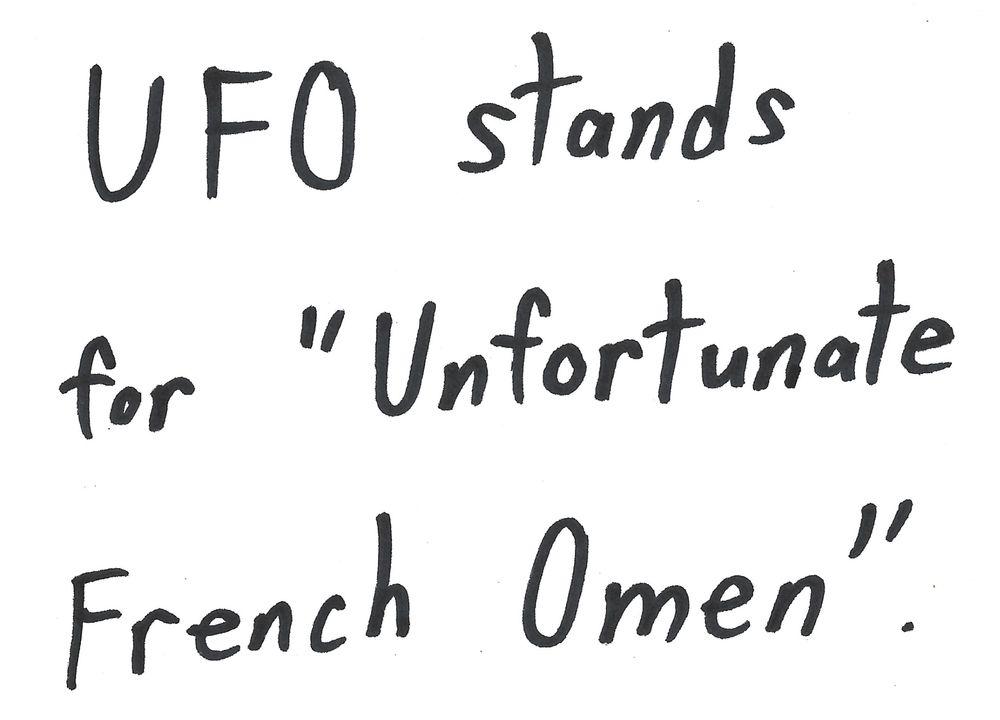 UFO stands
for "Unfortunate
French Omen".